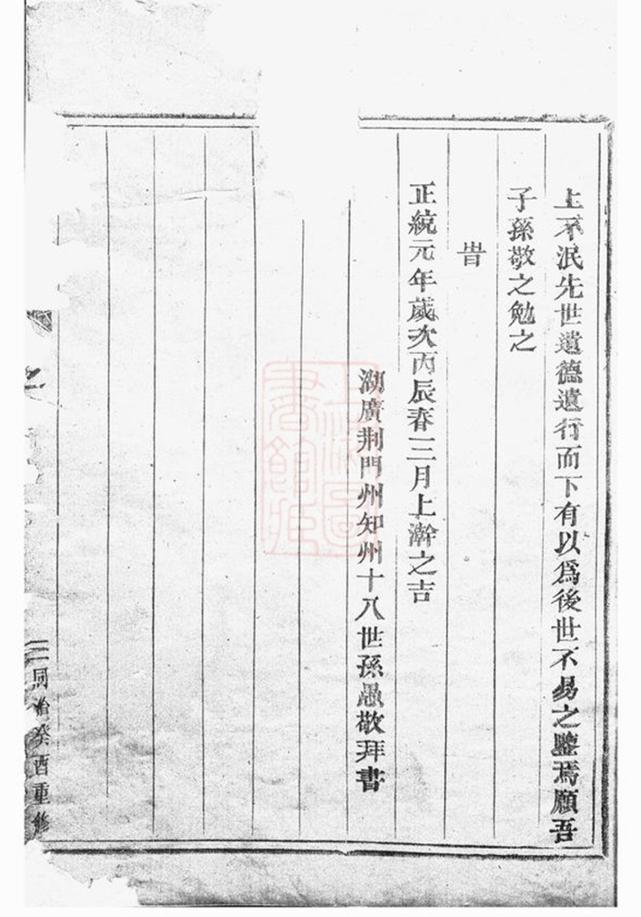 上不泯先世遺德遺行而下有以爲後世不易之鑒焉願吾
子孫敬之勉之
旹
正統元年歲次丙辰春三月上澣之吉
湖廣荆門州知州十八世孫愚敬拜書
同治癸酉重修
上海圖書館藏